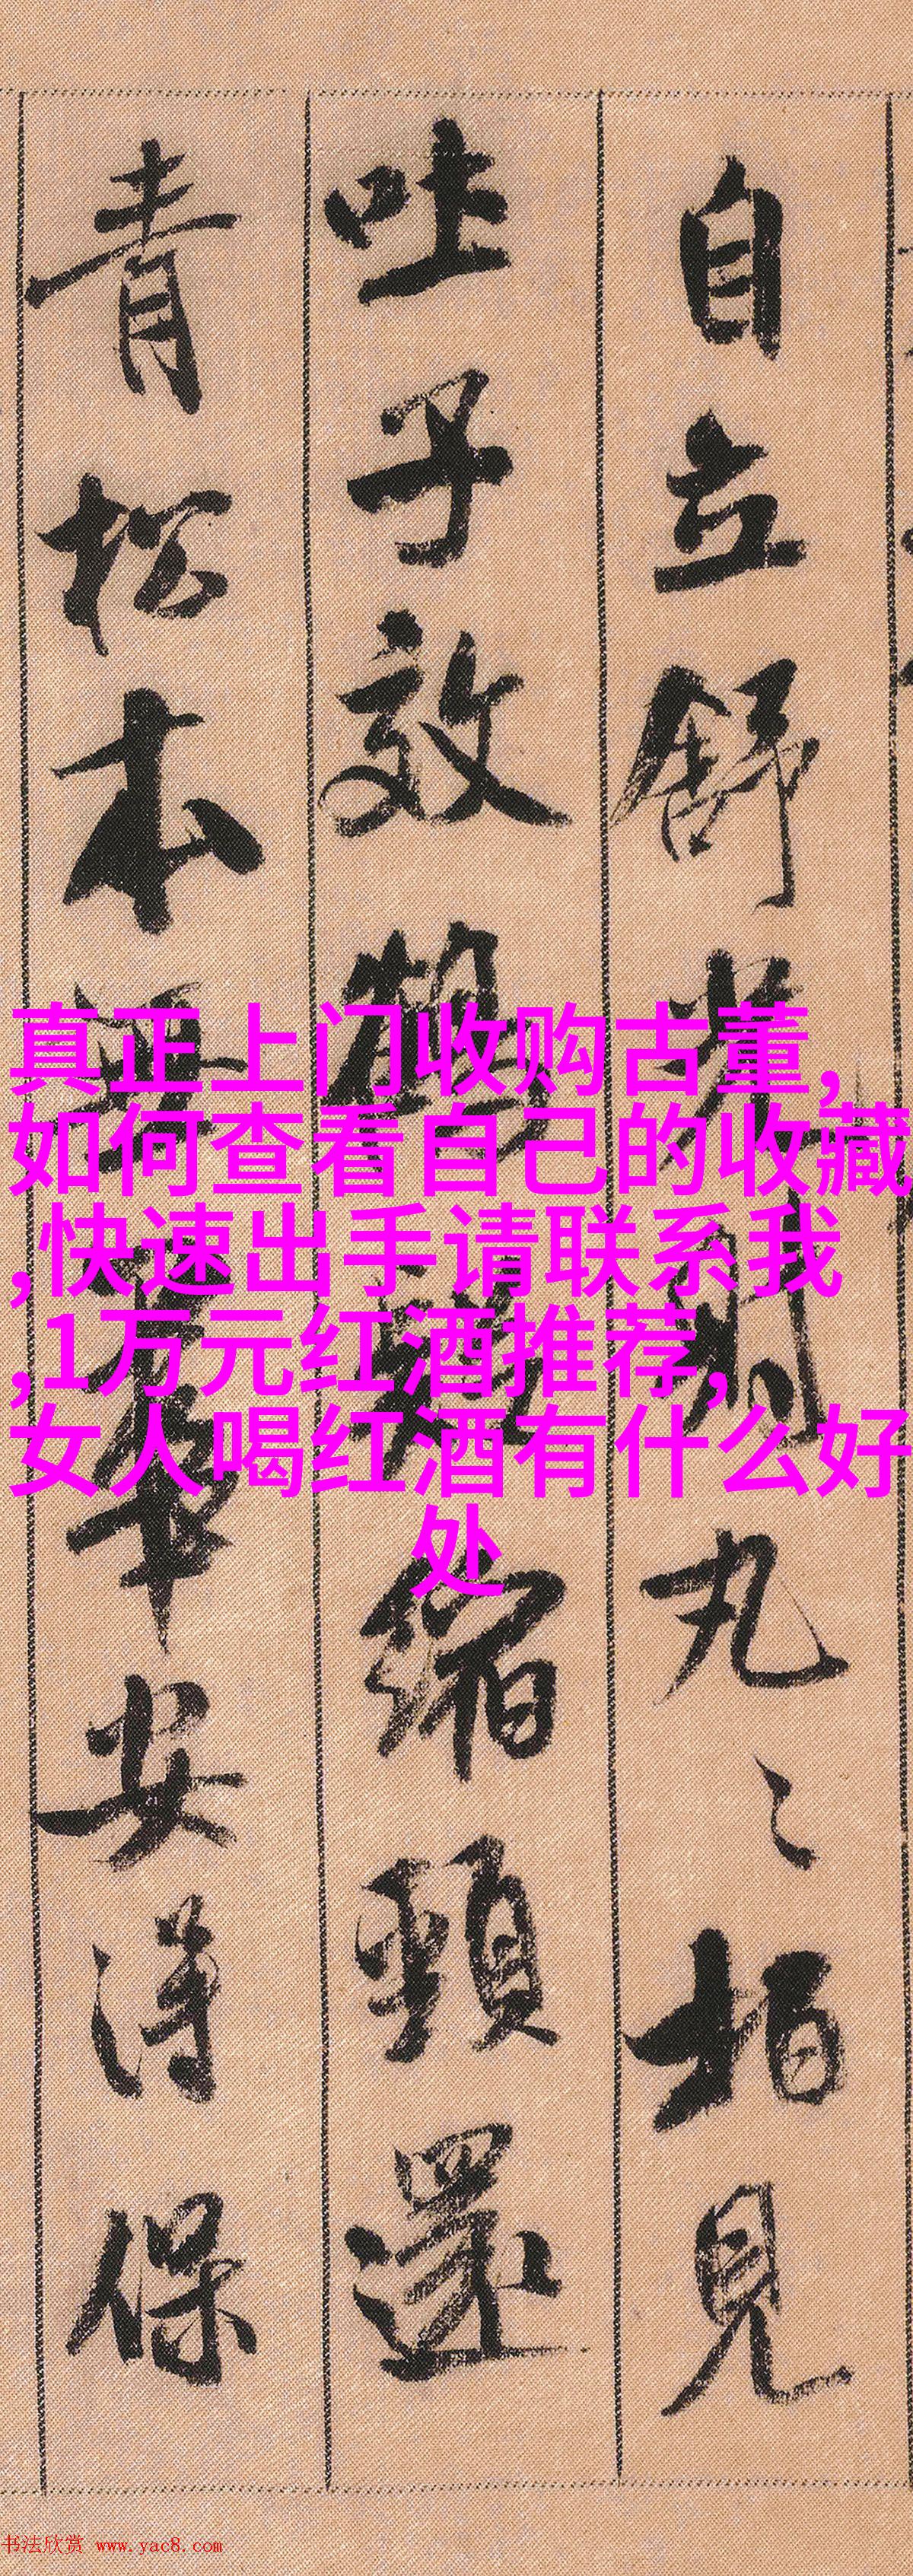 自立舒光射丸〻柏見
吐子效鶴疑縮頸還
青松本無華安得保
真正上门收购古董,
如何查看自己的收藏
,快速出手请联系我
,1万元红酒推荐,
女人喝红酒有什么好
处
书法欣赏 www.yac8.com